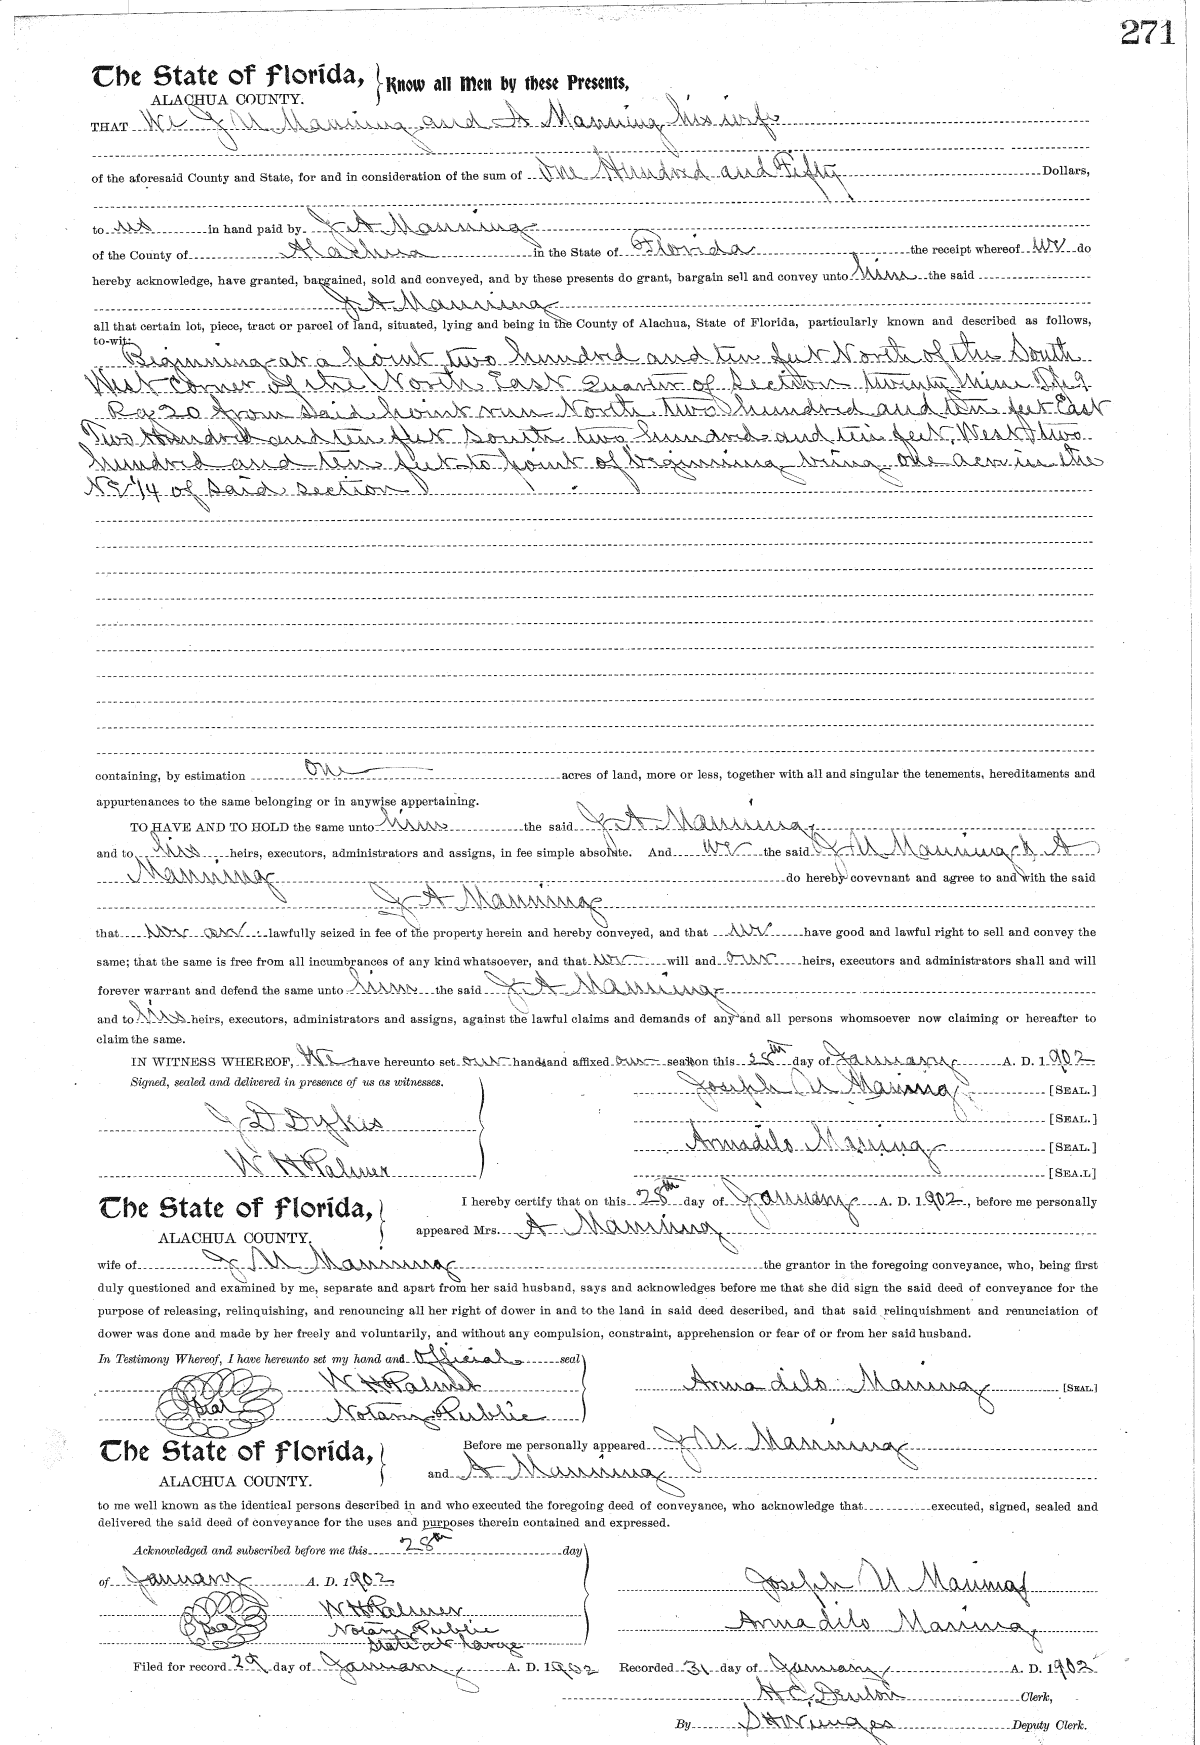 271
The State of Florida, Know all Men by these Presents,
ALACHUA COUNTY.
THAT We J U Manning and A Manning his wife
of the aforesaid County and State, for and in consideration of the sum of One Hundred and Fifty Dollars,
to us in hand paid by J A Manning
of the County of Alachua in the State of Florida the receipt whereof we do
hereby acknowledge, have granted, bargained, sold and conveyed, and by these presents do grant, bargain sell and convey unto him the said
J A Manning
all that certain lot, piece, tract or parcel of land, situated, lying and being in the County of Alachua, State of Florida, particularly known and described as follows,
to-wit:
Beginning at a point two hundred and ten feet North of the South
West Corner of the North East Quarter of Section twenty Nine Tp 9
Rg 20 from said point run North two hundred and ten feet East
Two Hundred and ten feet South two hundred and ten feet West two
hundred and ten feet to point of beginning being one acre in the
NE 1/4 of said section
containing, by estimation One acres of land, more or less, together with all and singular the tenements, hereditaments and
appurtenances to the same belonging or in anywise appertaining.
TO HAVE AND TO HOLD the same unto him the said J A Manning
and to his heirs, executors, administrators and assigns, in fee simple absolute. And we the said J U Manning & A
Manning do hereby covevnant and agree to and with the said
J A Manning
that we are lawfully seized in fee of the property herein and hereby conveyed, and that we have good and lawful right to sell and convey the
same; that the same is free from all incumbrances of any kind whatsoever, and that we will and our heirs, executors and administrators shall and will
forever warrant and defend the same unto him the said J A Manning
and to his heirs, executors, administrators and assigns, against the lawful claims and demands of any and all persons whomsoever now claiming or hereafter to
claim the same.
IN WITNESS WHEREOF, We have hereunto set our hands and affixed our seals on this 28th day of January A. D. 1902
Signed, sealed and delivered in presence of us as witnesses.
Joseph U Maning [SEAL.]
J D Dykes [SEAL.]
Armadilo Maning [SEAL.]
W H Palmer [SEA.L]
The State of Florida, I hereby certify that on this 28th day of January A. D. 1902, before me personally
ALACHUA COUNTY. appeared Mrs. A Manning
wife of J U Manning the grantor in the foregoing conveyance, who, being first
duly questioned and examined by me, separate and apart from her said husband, says and acknowledges before me that she did sign the said deed of conveyance for the
purpose of releasing, relinquishing, and renouncing all her right of dower in and to the land in said deed described, and that said relinquishment and renunciation of
dower was done and made by her freely and voluntarily, and without any compulsion, constraint, apprehension or fear of or from her said husband.
In Testimony Whereof, I have hereunto set my hand and Official seal
W H Palmer Armadilo Maning [SEAL.]
Seal Notary Public
The State of Florida, Before me personally appeared J U Manning
ALACHUA COUNTY. and A Manning
to me well known as the identical persons described in and who executed the foregoing deed of conveyance, who acknowledge that executed, signed, sealed and
delivered the said deed of conveyance for the uses and purposes therein contained and expressed.
Acknowledged and subscribed before me this 28th day
of January A. D. 1902 Joseph U Maning
W H Palmer
Seal Notary Public Armadilo Maning
State at Large
Filed for record 29 day of January A. D. 1902 Recorded 31 day of January A. D. 1902
H C Denton Clerk,
By S H Wienges Deputy Clerk.